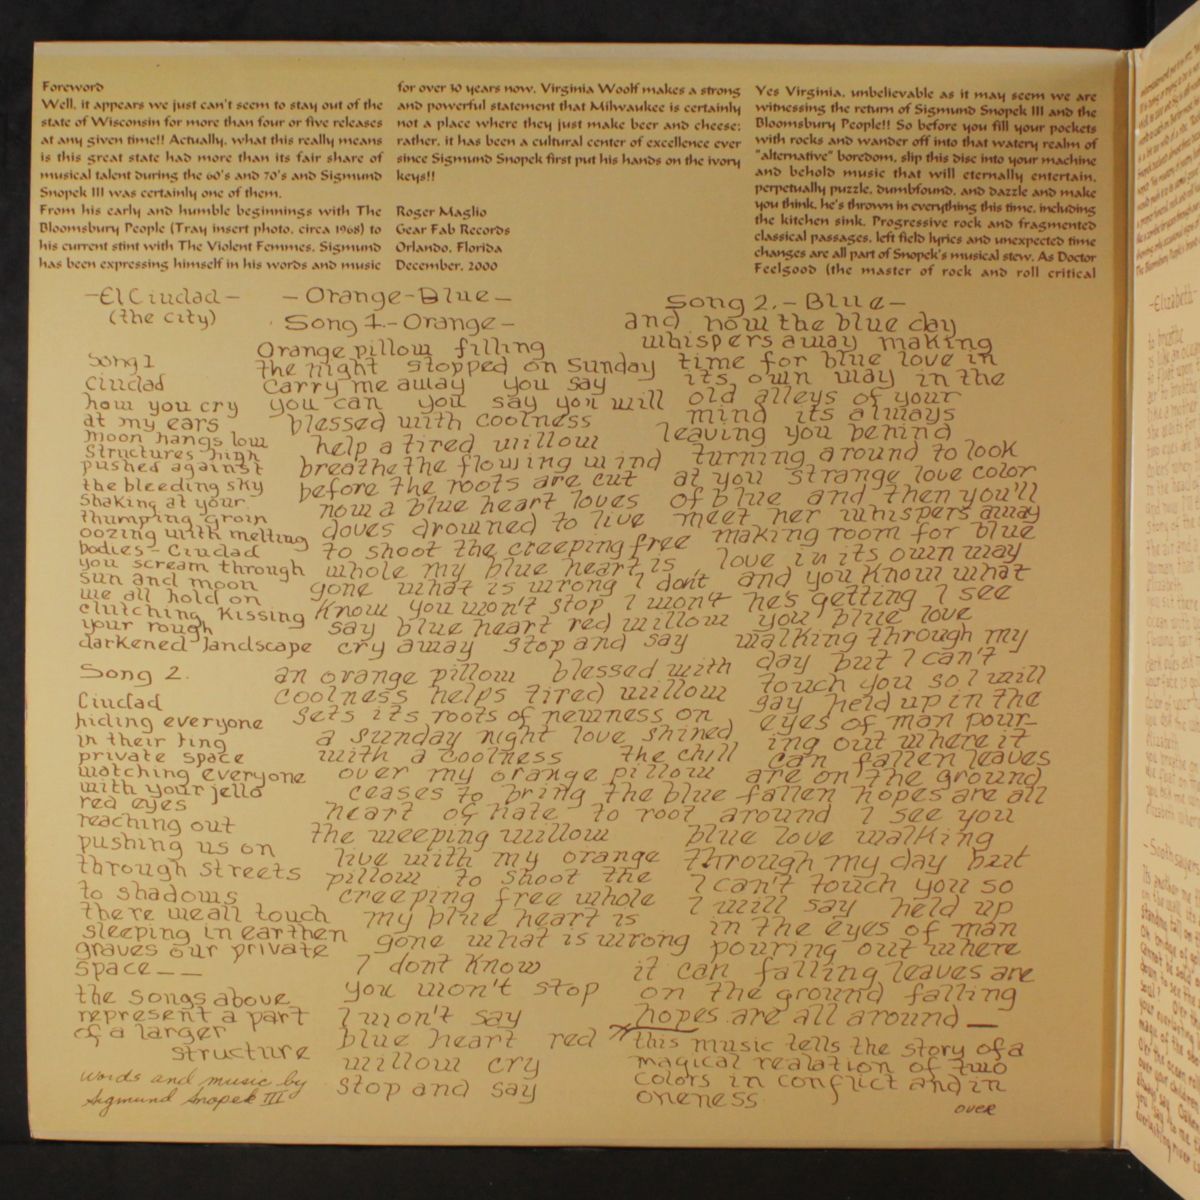 Foreword
Well, it appears we just can't seem to stay out of the
state of Wisconsin for more than four or five releases
at any given time!! Actually, what this really means
is this great state had more than its fair share of
musical talent during the 60's and 70's and Sigmund
Snopek III was certainly one of them.
From his early and humble beginnings with The
Bloomsbury People (Tray insert photo, circa 1968) to
his current stint with The Violent Femmes, Sigmund
has been expressing himself in his words and music
for over 30 years now. Virginia Woolf makes a strong
and powerful statement that Milwaukee is certainly
not a place where they just make beer and cheese;
rather, it has been a cultural center of excellence ever
since Sigmund Snopek first put his hands on the ivory
keys!!
Roger Maglio
Gear Fab Records
Orlando, Florida
December, 2000
Yes Virginia, unbelievable as it may seem we are
witnessing the return of Sigmund Snopek III and the
Bloomsbury People!! So before you fill your pockets
with rocks and wander off into that watery realm of
"alternative" boredom, slip this disc into your machine
and behold music that will eternally entertain,
perpetually puzzle, dumbfound, and dazzle and make
you think, he's thrown in everything this time, including
the kitchen sink. Progressive rock and fragmented
classical passages, left field lyrics and unexpected time
changes are all part of Snopek's musical stew. As Doctor
Feelgood (the master of rock and roll critical
-El Ciudad-
(the city)
Song 1
Ciudad
how you cry
at my ears
moon hangs low
structures high
pushed against
the bleeding sky
shaking at your
thumping groin
oozing with melting
bodies - Ciudad
you scream through
sun and moon
we all hold on
clutching kissing
your rough
darkened landscape
Song 2.
Ciudad
hiding everyone
in their ting
private space
watching everyone
with your jello
red eyes
reaching out
pushing us on
through streets
to shadows
there we all touch
sleeping in earthen
graves our private
space--
the songs above
represent a part
of a larger
structure
words and music by
Sigmund Snopek III
-Orange-Blue-
Song 1.-Orange-
Orange pillow filling
the night stopped on Sunday
carry me away you say
you can you say you will
blessed with coolness
help a tired willow
breathe the flowing wind
before the roots are cut
now a blue heart loves
doves drowned to live
to shoot the creeping free
whole my blue heart is
gone what is wrong I dont
know you won't stop I won't
say blue heart red willow
cry away stop and say
an orange pillow blessed with
coolness helps tired willow
sets its roots of newness on
a sunday night love shined
with a coolness the chill
over my orange pillow
ceases to bring the blue
heart of hate to root
the weeping willow
live with my orange
pillow to shoot the
creeping free whole
my blue heart is
gone what is wrong
I dont know
you won't stop
I won't say
blue heart red
willow cry
stop and say
Song 2.-Blue-
and now the blue day
whispers away making
time for blue love in
its own way in the
old alleys of your
mind its always
leaving you behind
turning around to look
at you strange love color
of blue and then you'll
meet her whispers away
making room for blue
love in its own way
and you know what
he's getting I see
you blue love
walking through my
day but I can't
touch you so I will
say held up in the
eyes of man pour-
ing out where it
can fallen leaves
are on the ground
fallen hopes are all
around I see you
blue love walking
through my day but
I can't touch you so
I will say held up
in the eyes of man
pouring out where
it can falling leaves are
on the ground falling
hopes are all around—
this music tells the story of a
magical realation of two
colors in conflict and in
oneness
over
-Elizabeth-